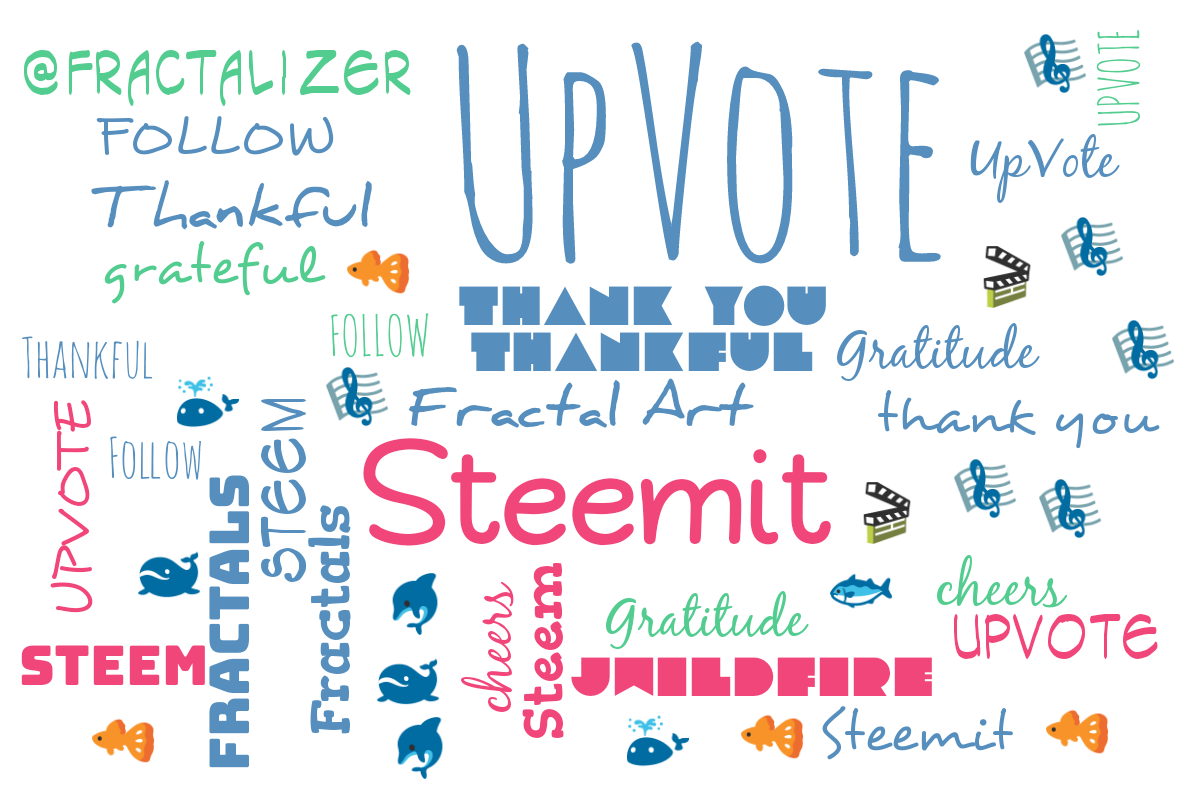 @FRACTALIZER
FOLLOW
Thankful
grateful
UpVote
UPVOTE
UpVote
THANK YOU
THANKFUL
Gratitude
FOLLOW
Thankful
Fractal Art
thank you
UPVOTE
Follow
STEEM
FRACTALS
Fractals
Steemit
cheers
Steem
Gratitude
cheers
UPVOTE
STEEM
JWILDFIRE
Steemit